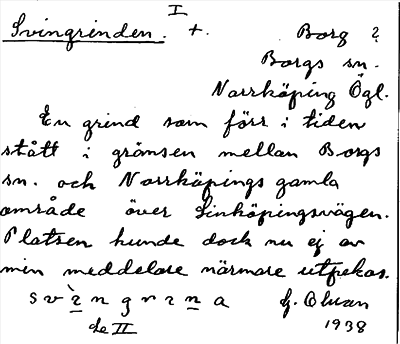 I
Svingrinden. +. Borg ?
Borgs sn.
Norrköping Ögl.
En grind som förr i tiden
stått i gränsen mellan Borgs
sn. och Norrköpings gamla
område över Linköpingsvägen.
Platsen kunde dock nu ej av
min meddelare närmare utpekas.
svìngrına
de II
1938